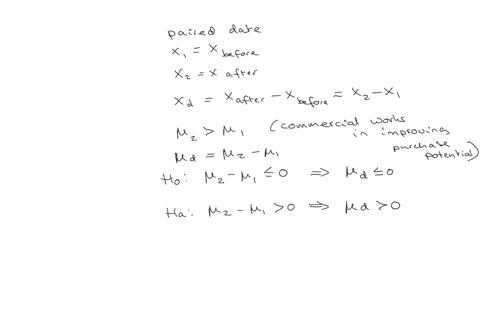 paired date
x₁ = x before
x₂ = x after
x_d = x after − x before = x₂ − x₁
μ₂ > μ₁ (commercial works
in improving
purchase
potential)
μ_d = μ₂ − μ₁
Ho: μ₂ − μ₁ ≤ 0 ⟹ μ_d ≤ 0
Ha: μ₂ − μ₁ > 0 ⟹ μ_d > 0